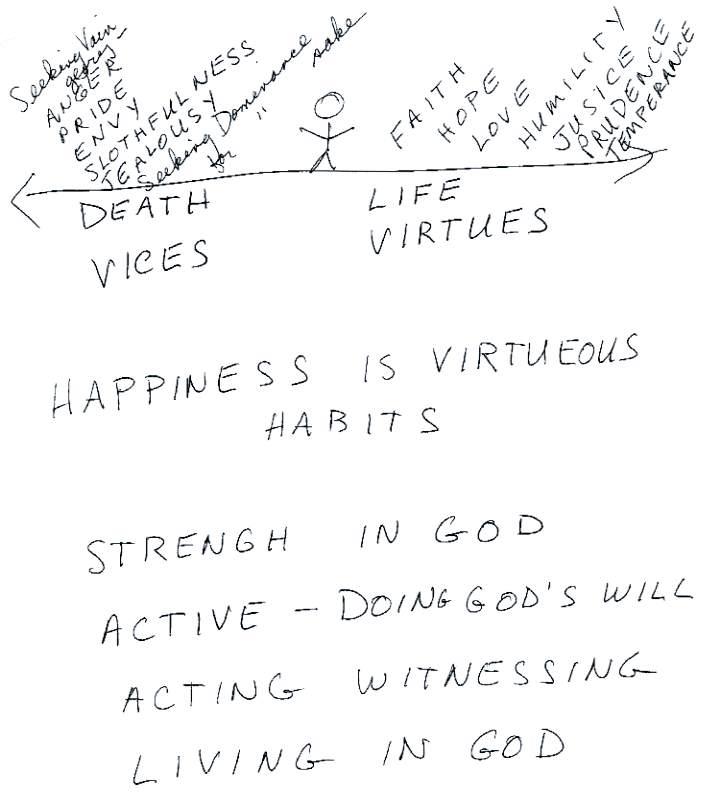 Seeking Vain
glories
ANGER
PRIDE
ENVY
SLOTHFULNESS
JEALOUSY
Seeking Domenance
for " sake
FAITH
HOPE
LOVE
HUMILITY
JUSICE
PRUDENCE
TEMPERANCE
DEATH
VICES
LIFE
VIRTUES
HAPPINESS IS VIRTUEOUS
HABITS
STRENGH IN GOD
ACTIVE – DOING GOD'S WILL
ACTING WITNESSING
LIVING IN GOD